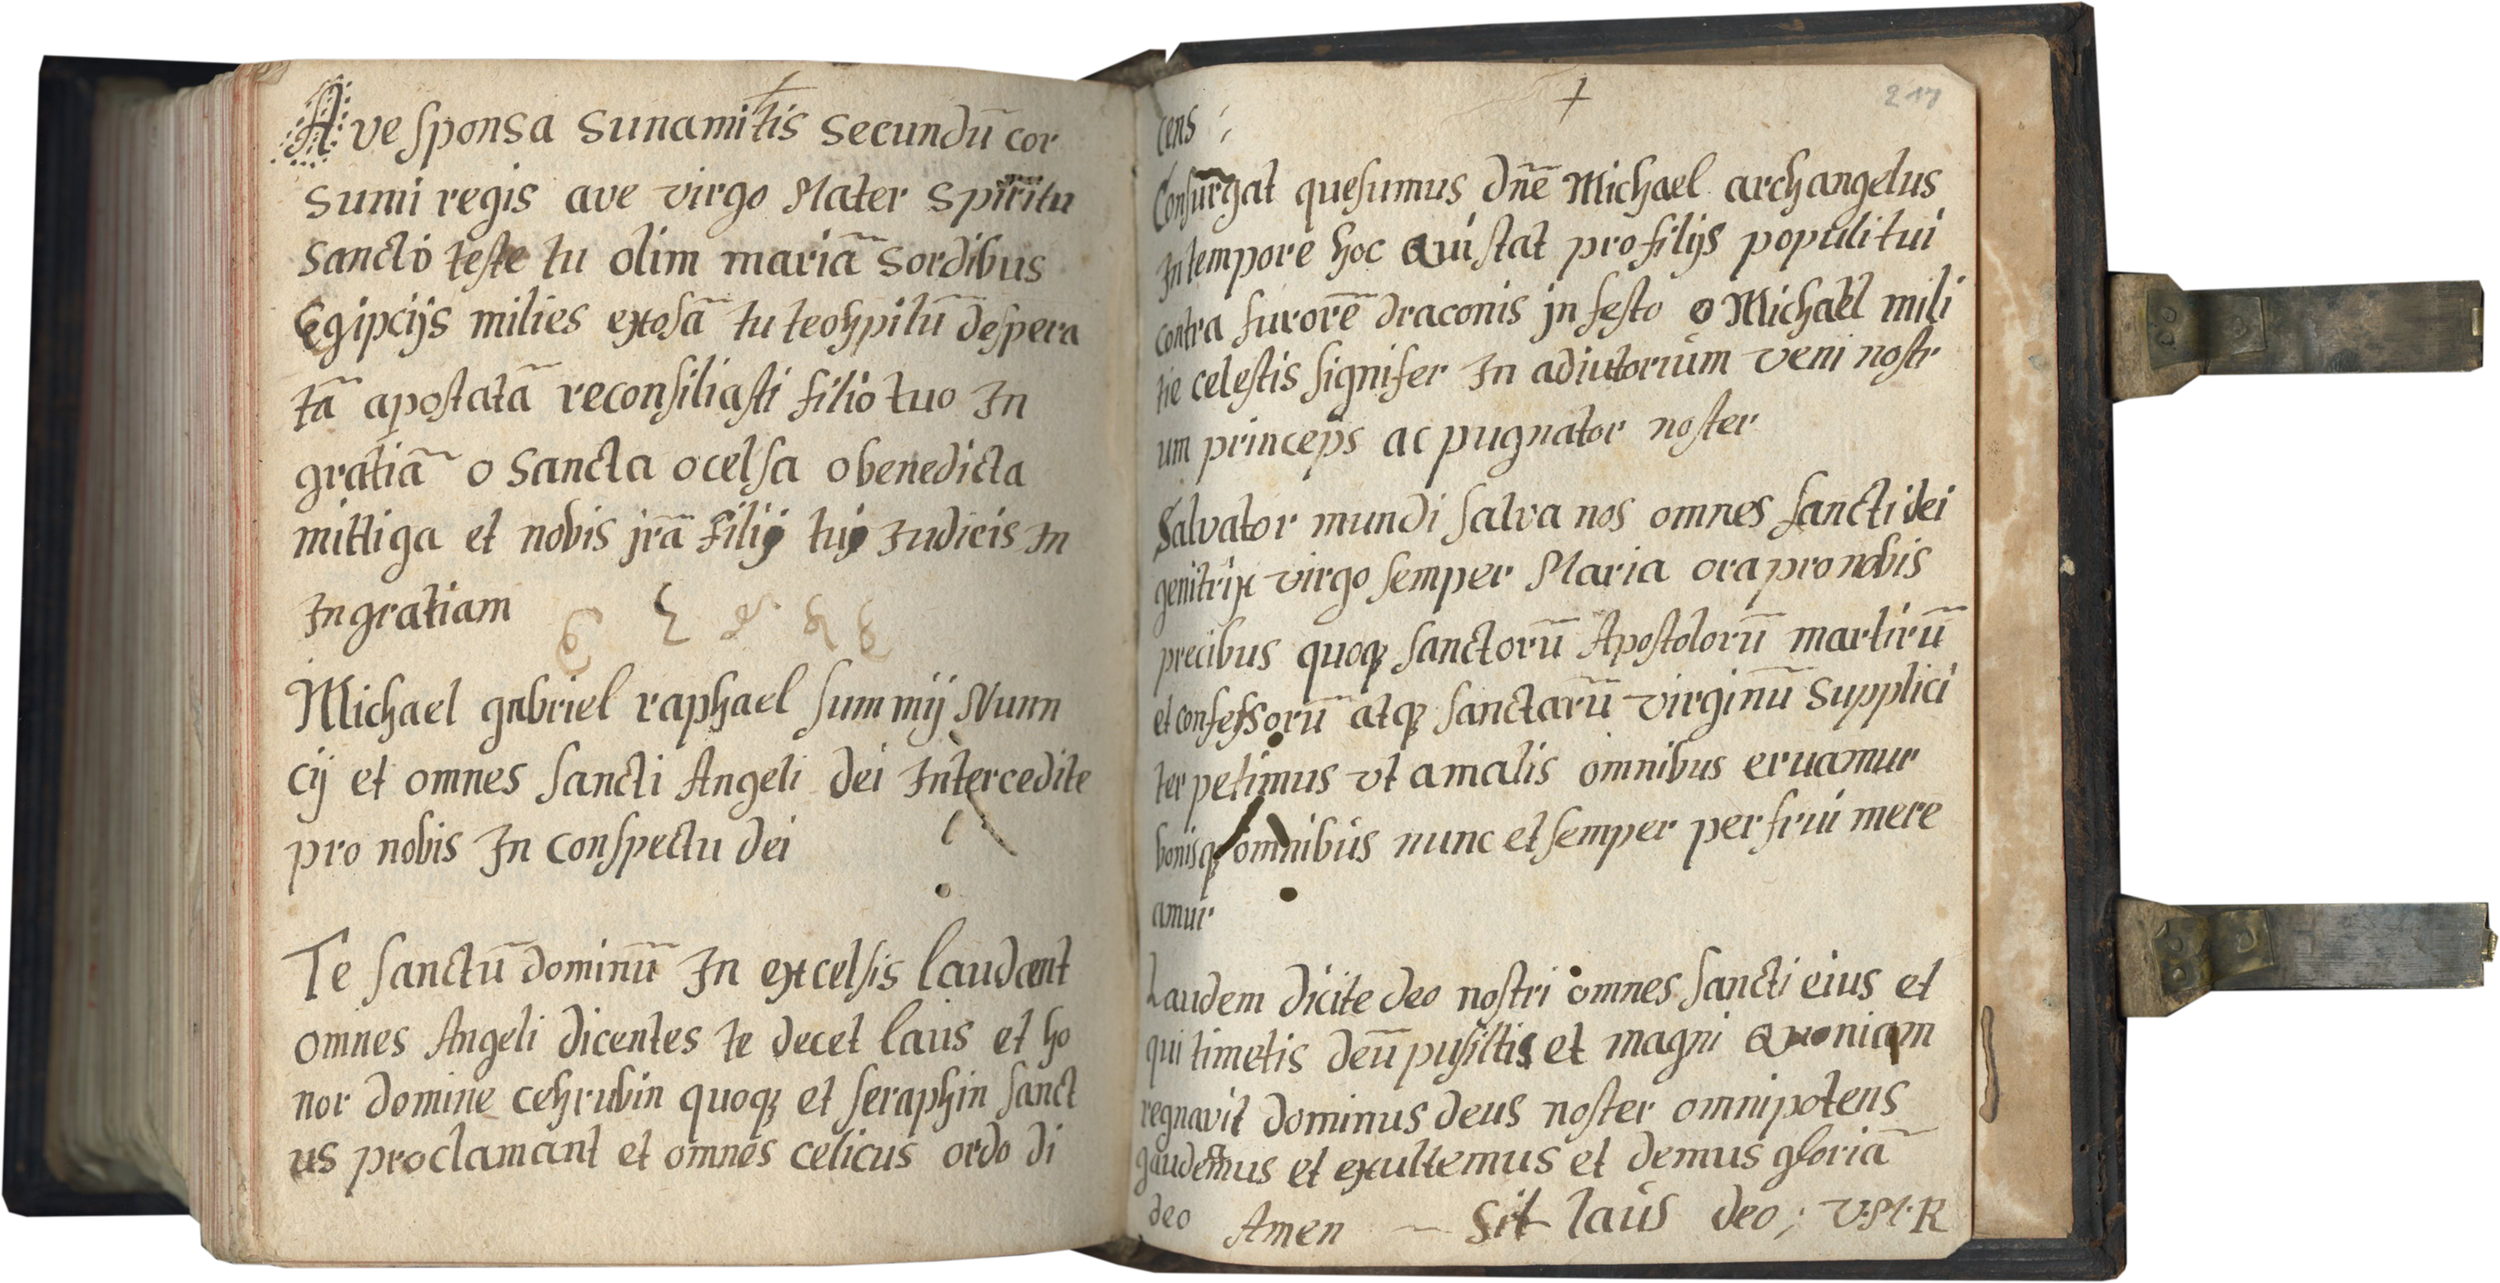 Ave sponsa sunamitis secundū cor
sumi regis ave virgo Mater spiritu
sancto teste tu olim mariā sordibus
Egipcijs milies exosā tu teohpilū despera
tā apostatā reconsiliasti filio tuo In
gratiā o sancta o celsa o benedicta
mittiga et nobis jrā filij tuj Iudicis In
In gratiam
Michael gabriel raphael summij Nunn
cij et omnes sancti Angeli dei Intercedite
pro nobis In conspectu dei
Te sanctū dominū In excelsis laudent
omnes Angeli dicentes te decet laus et ho
nor domine cehrubin quoqꝫ et seraphin sanct
us proclamant et omnes celicus ordo di
+
217
cens ;
Consurgat quesumus dn̄e Michael archangelus
In tempore hoc Qui stat pro filijs populi tui
contra furorē draconis jn festo o Michael mili
tie celestis signifer In adiutorium veni nostr
um princeps ac pugnator noster
Salvator mundi salva nos omnes sancti dei
genitrix virgo semper Maria ora pro nobis
precibus quoqꝫ sanctorū Apostolorū martirū
et confessorū atqꝫ sanctarū virginū supplici
ter petimus vt a malis omnibus eruamur
bonisqꝫ omnibus nunc et semper perfrui mere
amur
Laudem dicite deo nostri omnes sancti eius et
qui timetis deū pusiltis et magni Quoniam
regnavit dominus deus noster omnipotens
gaudemus et exultemus et demus gloriā
deo Amen ~ Sit laus deo ; V·M·R